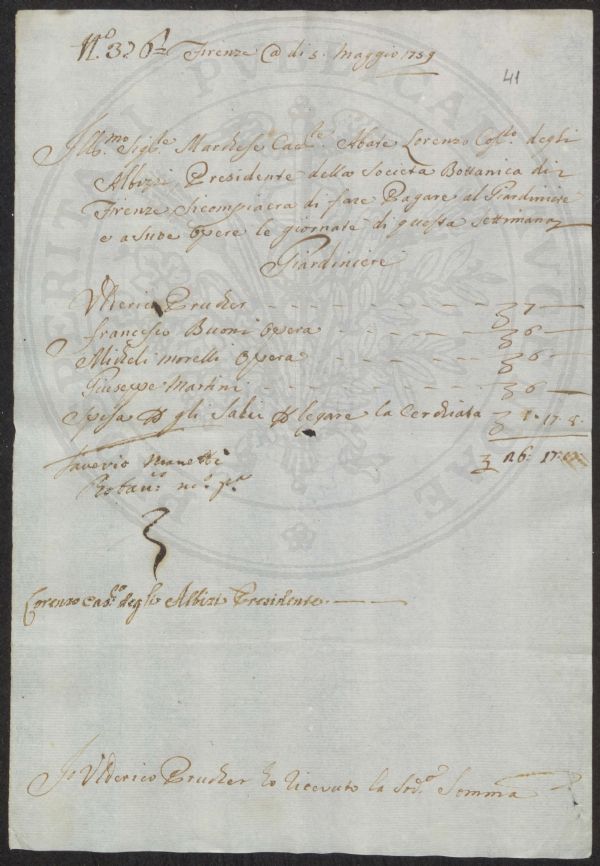 N.° 326 Firenze @ di 5. Maggio 1759
41
Ill.mo Sig.re Marchese Cav.re Abate Lorenzo Cos.mo degli
Albizi Presidente della Società Bottanica di
Firenze si compiacera di fare Pagare al Giardiniere
e a sude opere le giornate di questa settimana
Giardiniere
Ulderico Prucker 7
Francesco Buoni Opera 6
Micheli Morelli Opera 6
Giuseppe Martini 6
Spesa gli Salci legare la Cerchiata 1. 17. 8.
Saverio Manetti 26. 17.
Lorenzo degli Albizi Presidente
Io Ulderico Prucker ho ricevuto la Sud.a Somma